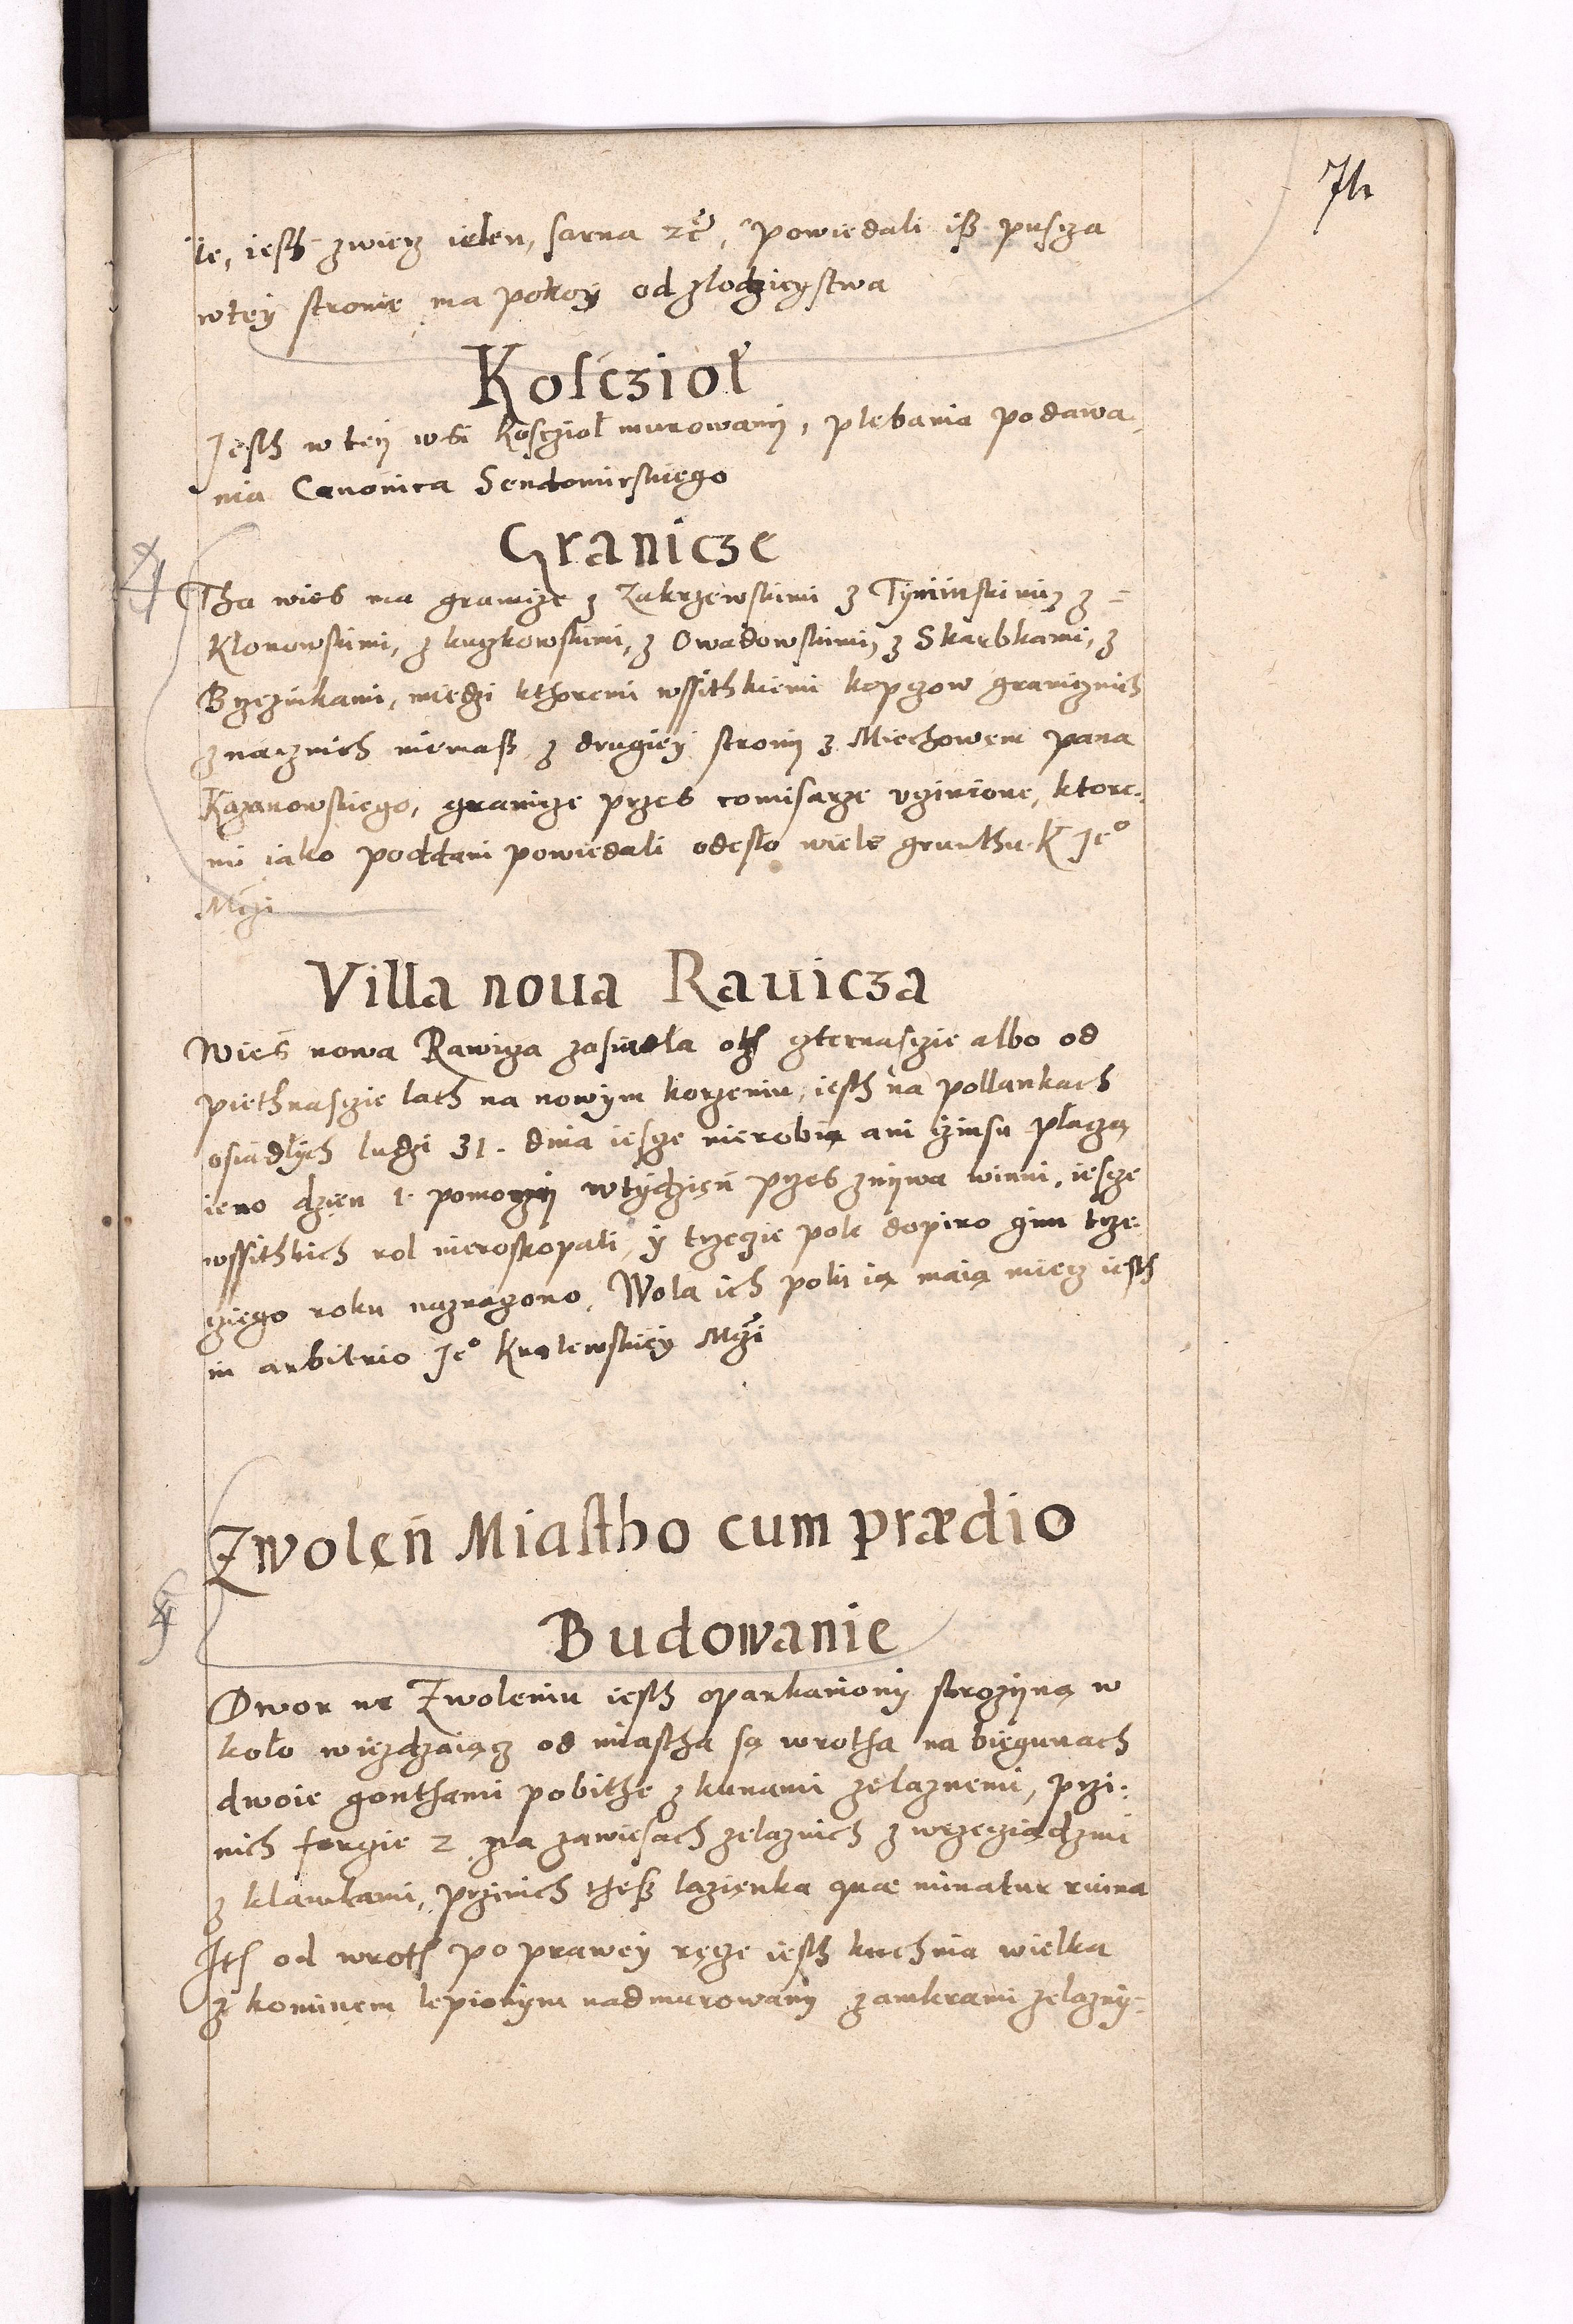 74
le, iesth zwierz ielen, sarna etc., powiedali iß puscza
w tey stronie ma pokoy od zlodzieystwa
Kosczioł
Jesth w tey wsi koscziol murowany, plebania podawa
nia Canonica Sendomirskiego
Granicze
Tha wies ma granicze z Zakrzewskimi z Tyminskimi, z =
Klonowskimi, z kuczkowskimi, z Owadowskimi, z Skarbkami, z
Brzezinkami, miedzi kthoremi wssithkiemi kopczow granicznich
znacznich niemaß, z drugiey strony z Miechowem pana
Kazanowskiego, granicze przes comisarze vczinione, ktore-
mi iako poddani powiedali odesło wiele grunthu K Je°
Mczi
Villa noua Rauicza
Wieś nowa Rawicza zasiadla oth czternasczie albo od
piethnasczie lath na nowym korzeniu, iesth na pollankach
osiadłych ludzi 31. dnia iescze nierobią ani czinsu płaczą
ieno dzien 1. pomoczny w tydzień przes zniwa winni, iescze
wssithkich rol nieroskopali, y trzeczie pole dopiro gim trze-
cziego roku naznaczono. Wola ich poki ią maią miecz iesth
in arbitrio Je° Krolewskiey Mczi
Zwoleń Miastho cum prædio
Budowanie
Dwor we Zwoleniu iesth oparkaniony strozyną w
koło wiezdzaiącz od miastha są wrotha na biegunach
dwoie gonthami pobithe z kunami zelaznemi, przi-
nich forcie 2 na zawiesach zelaznich z wrzecziądzmi
z klamkami, przinich thesz lazienka quæ minatur ruina
Ith od wroth po prawey ręcze iesth kuchnia wielka
z kominem lepionym nadmurowany z ankrami zelazny-